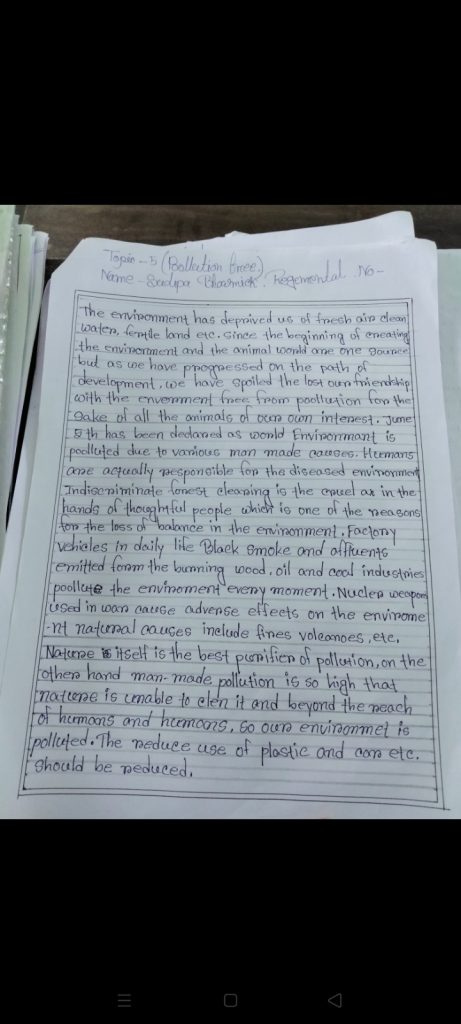 Topic - 5 (Pollution free)
Name - Sudipa Bhowmick. Regemental No -
The environment has deprived us of fresh air clean
water, fertile land etc. since the beginning of creating
the environment and the animal world are one source
but as we have progressed on the path of
development, we have spoiled the lost our friendship
with the envernment free from poollution for the
sake of all the animals of our own interest. June
5th has been declared as world Environmant is
poolluted due to various man made causes. Humans
are actually responsible for the diseased environment
Indiscriminate forest cleaning is the cruel ax in the
hands of thoughtful people which is one of the reasons
for the loss of balance in the environment. Factory
vehicles in daily life Black smoke and affluents
emitted form the burning wood, oil and coal industries
poollute the enviroment every moment. Nucler weapon
used in war cause adverse effects on the envirome
-nt natural causes include fires volcanoes, etc,
Nature is itself is the best purifier of pollution, on the
other hand man-made pollution is so high that
nature is unable to clen it and beyond the reach
of humans and humans, so our environmet is
polluted. The reduce use of plastic and car etc.
should be reduced.